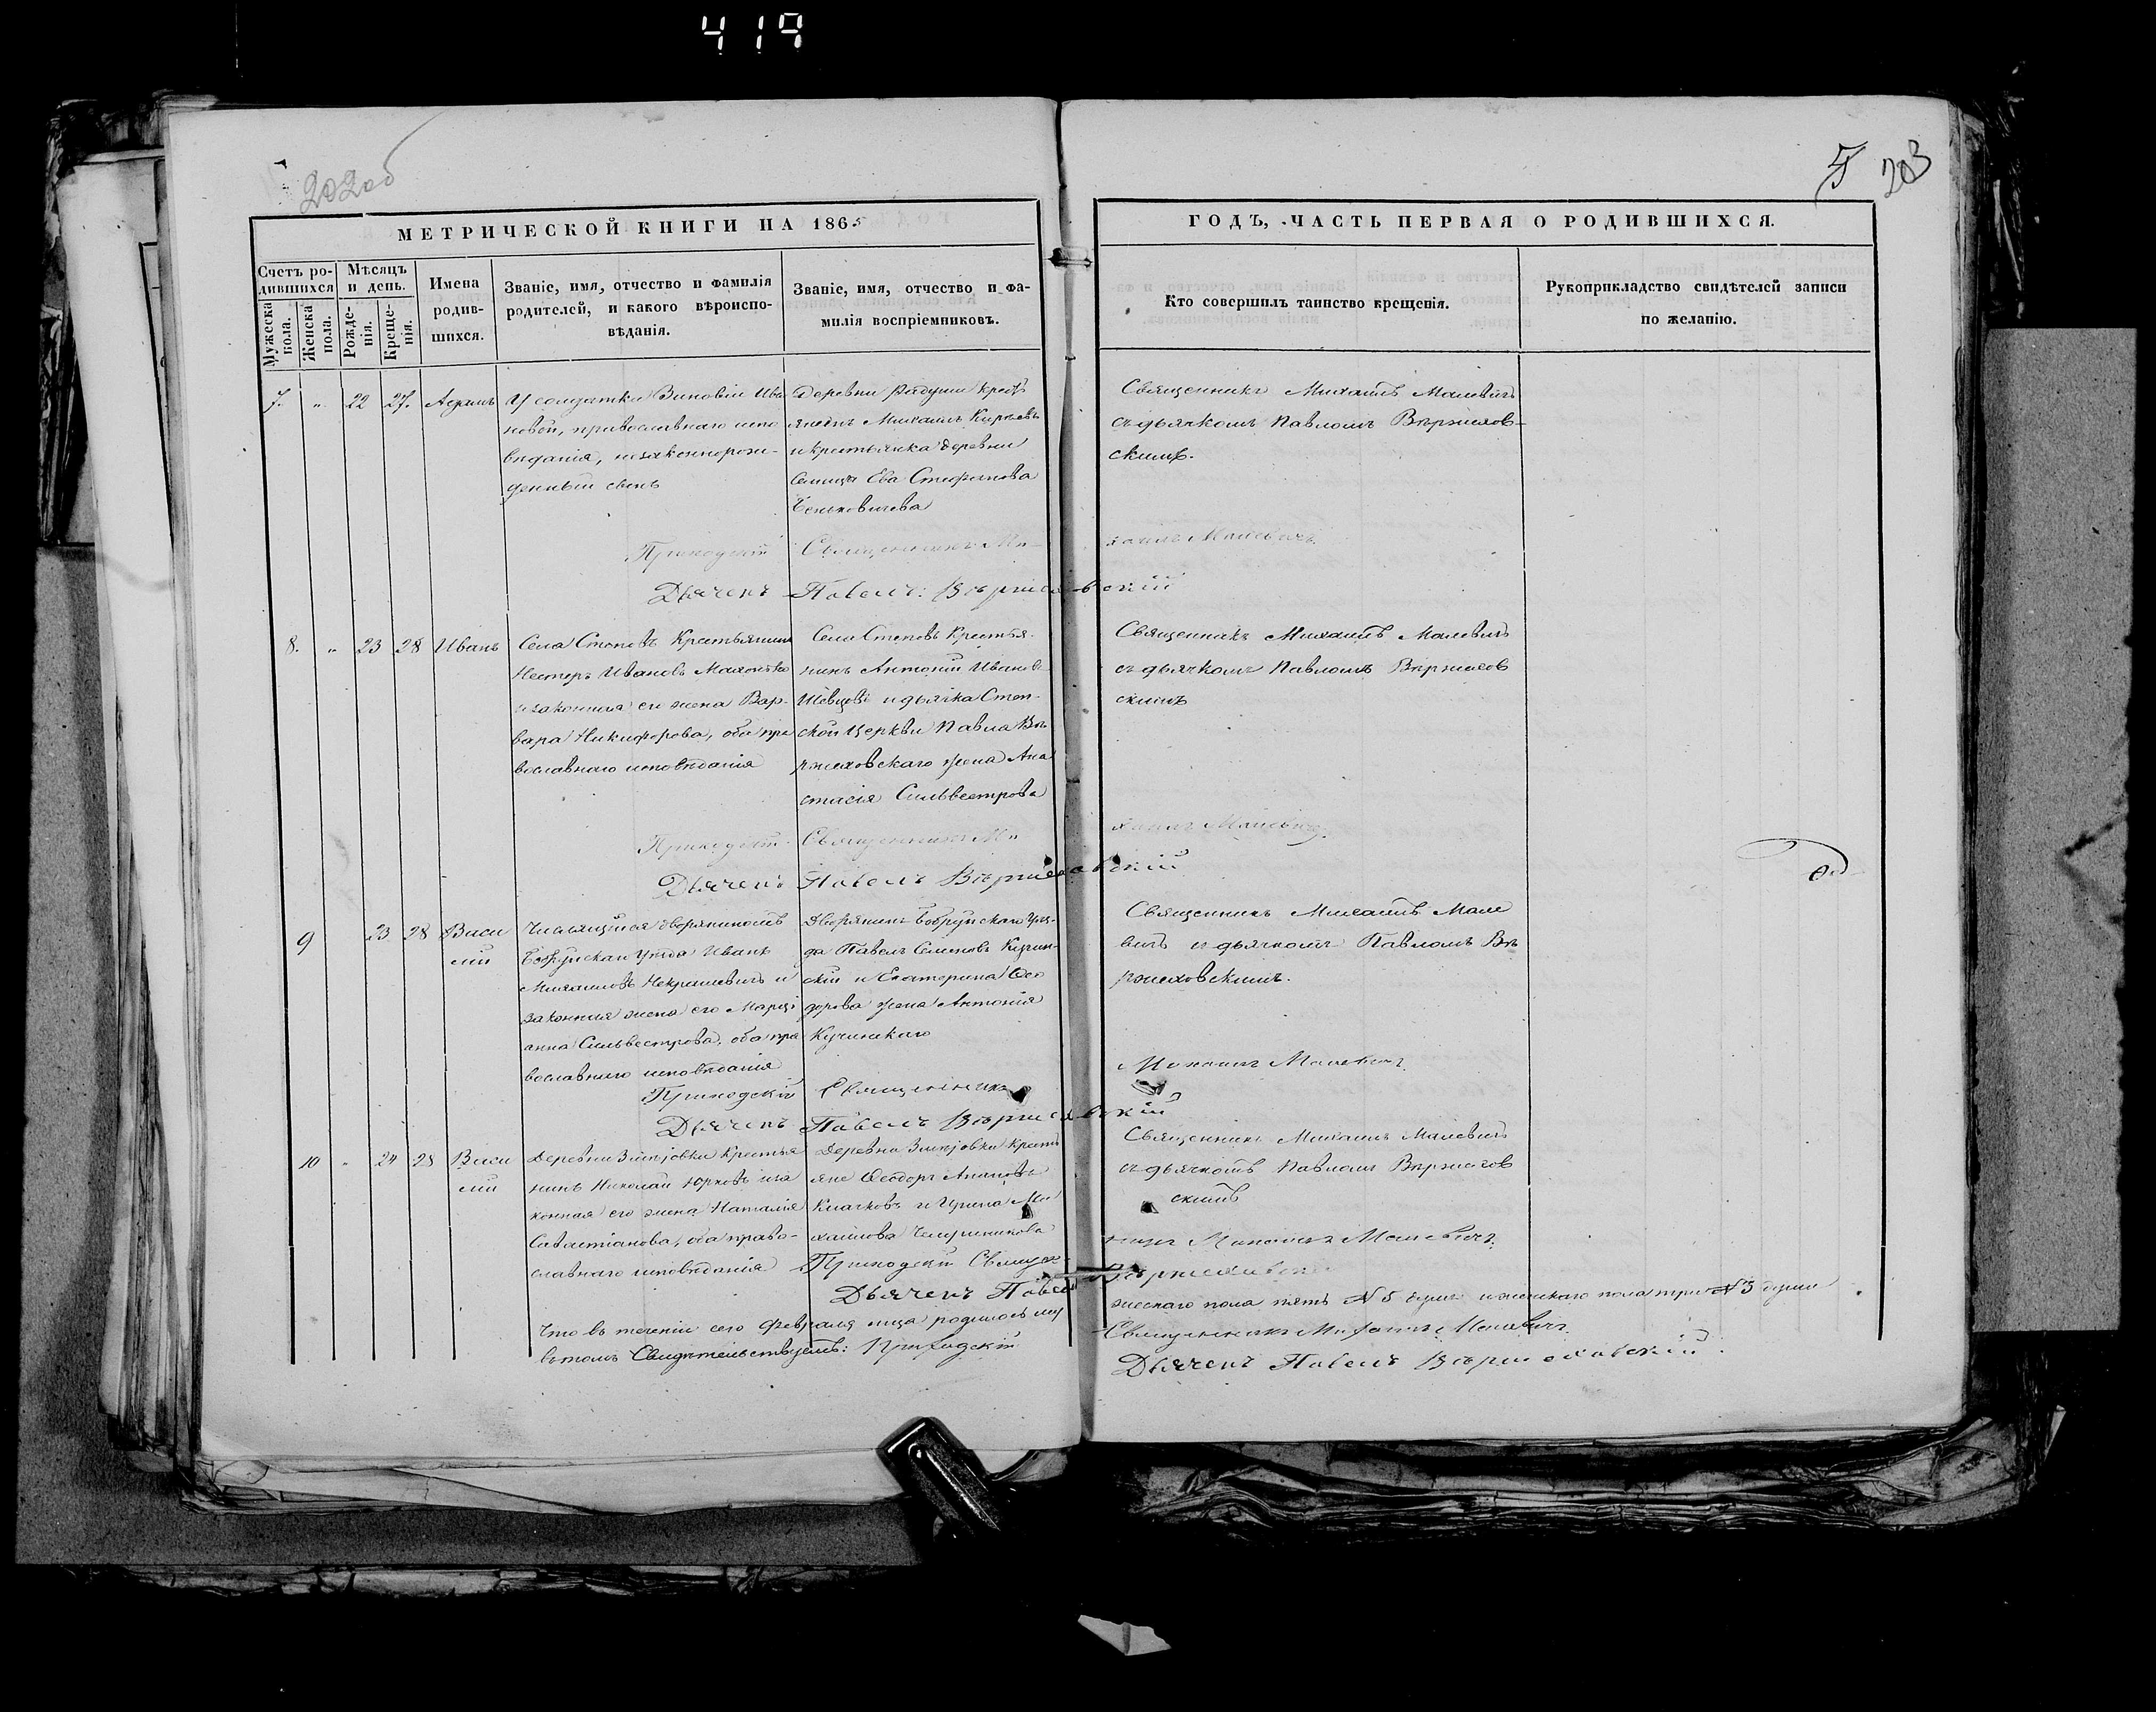 419
202об
5 203
МЕТРИЧЕСКОЙ КНИГИ НА 1865
ГОДЪ, ЧАСТЬ ПЕРВАЯ О РОДИВШИХСЯ.
Счетъ ро-
дившихся
Мужеска
пола.
Женска
пола.
Мѣсяцъ
и день.
Рожде-
нія.
Креще-
нія.
Имена
родив-
шихся.
Званіе, имя, отчество и фамилія
родителей, и какого вѣроиспо-
вѣданія.
Званіе, имя, отчество и фа-
милія воспріемниковъ.
Кто совершилъ таинство крещенія.
Рукоприкладство свидѣтелей записи
по желанію.
7. " 22 27. Адамъ
У солдатки Зиновіи Ива
новой, православнаго испо
вѣданія, незаконнорож-
денный сынъ
Деревни Радуши крест
янинъ Михаилъ
и крестьянка деревни
Ева Стефанова
Священникъ Михаилъ Малевичъ
съ дьячкомъ Павломъ Вержехов-
скимъ.
Приходскій Священникъ Ми-
хаилъ Малевичъ.
Дьячекъ Павелъ Вержеховскій
8. " 23 28 Иванъ
Села Степовъ Крестьянинъ
Нестеръ Ивановъ
и законная его жена Вар-
вара Никифорова, оба пра
вославнаго исповѣданія
Села Степовъ Крестья-
нинъ Антоній Ивановъ
Шевцовъ и дьячка Степ-
ской Церкви Павла Ве
ржеховскаго жена Ана
стасія Сильвестрова
Священникъ Михаилъ Малевичъ
съ дьячкомъ Павломъ Вержехов
скимъ
Приходскій Священникъ Ми
хаилъ Малевичъ.
Дьячекъ Павелъ Вержеховскій
9 23 28 Васи
лій
Числящійся дворяниномъ
Бобруйскаго уѣзда Иванъ
Михаиловъ Некрашевичъ и
законная жена его Марці
анна Сильвестрова, оба пра
вославнаго исповѣданія
Дворянинъ Бобруйскаго уѣз-
да Павелъ Семеновъ Кучин-
скій и Екатерина Ѳео
дорова жена Антонія
Кучинскаго
Священникъ Михаилъ Мале
вичъ и дьячкомъ Павломъ Ве
ржеховскимъ.
Приходскій Священникъ
Михаилъ Малевичъ.
Дьячекъ Павелъ Вержеховскій
10 " 24 28 Васи
лій
Деревни Крестья
нинъ Николай Юрковъ и за
конная его жена Наталія
Севастіанова, оба право-
славнаго исповѣданія
Деревни Кресть
яне Ѳеодоръ
и Ирина Ми
хаилова
Священникъ Михаилъ Малевичъ
съ дьячкомъ Павломъ Вержехов
скимъ
Приходскій Священ-
никъ Михаилъ Малевичъ.
Дьячекъ Павелъ
Вержеховскій
Что въ теченіи сего Февраля мца родилось му
жескаго пола пять № 5 душъ и женскаго пола три № 3 души
въ томъ Свидѣтельствуемъ: Приходскій
Священникъ Михаилъ Малевичъ
Дьячекъ Павелъ Вержеховскій